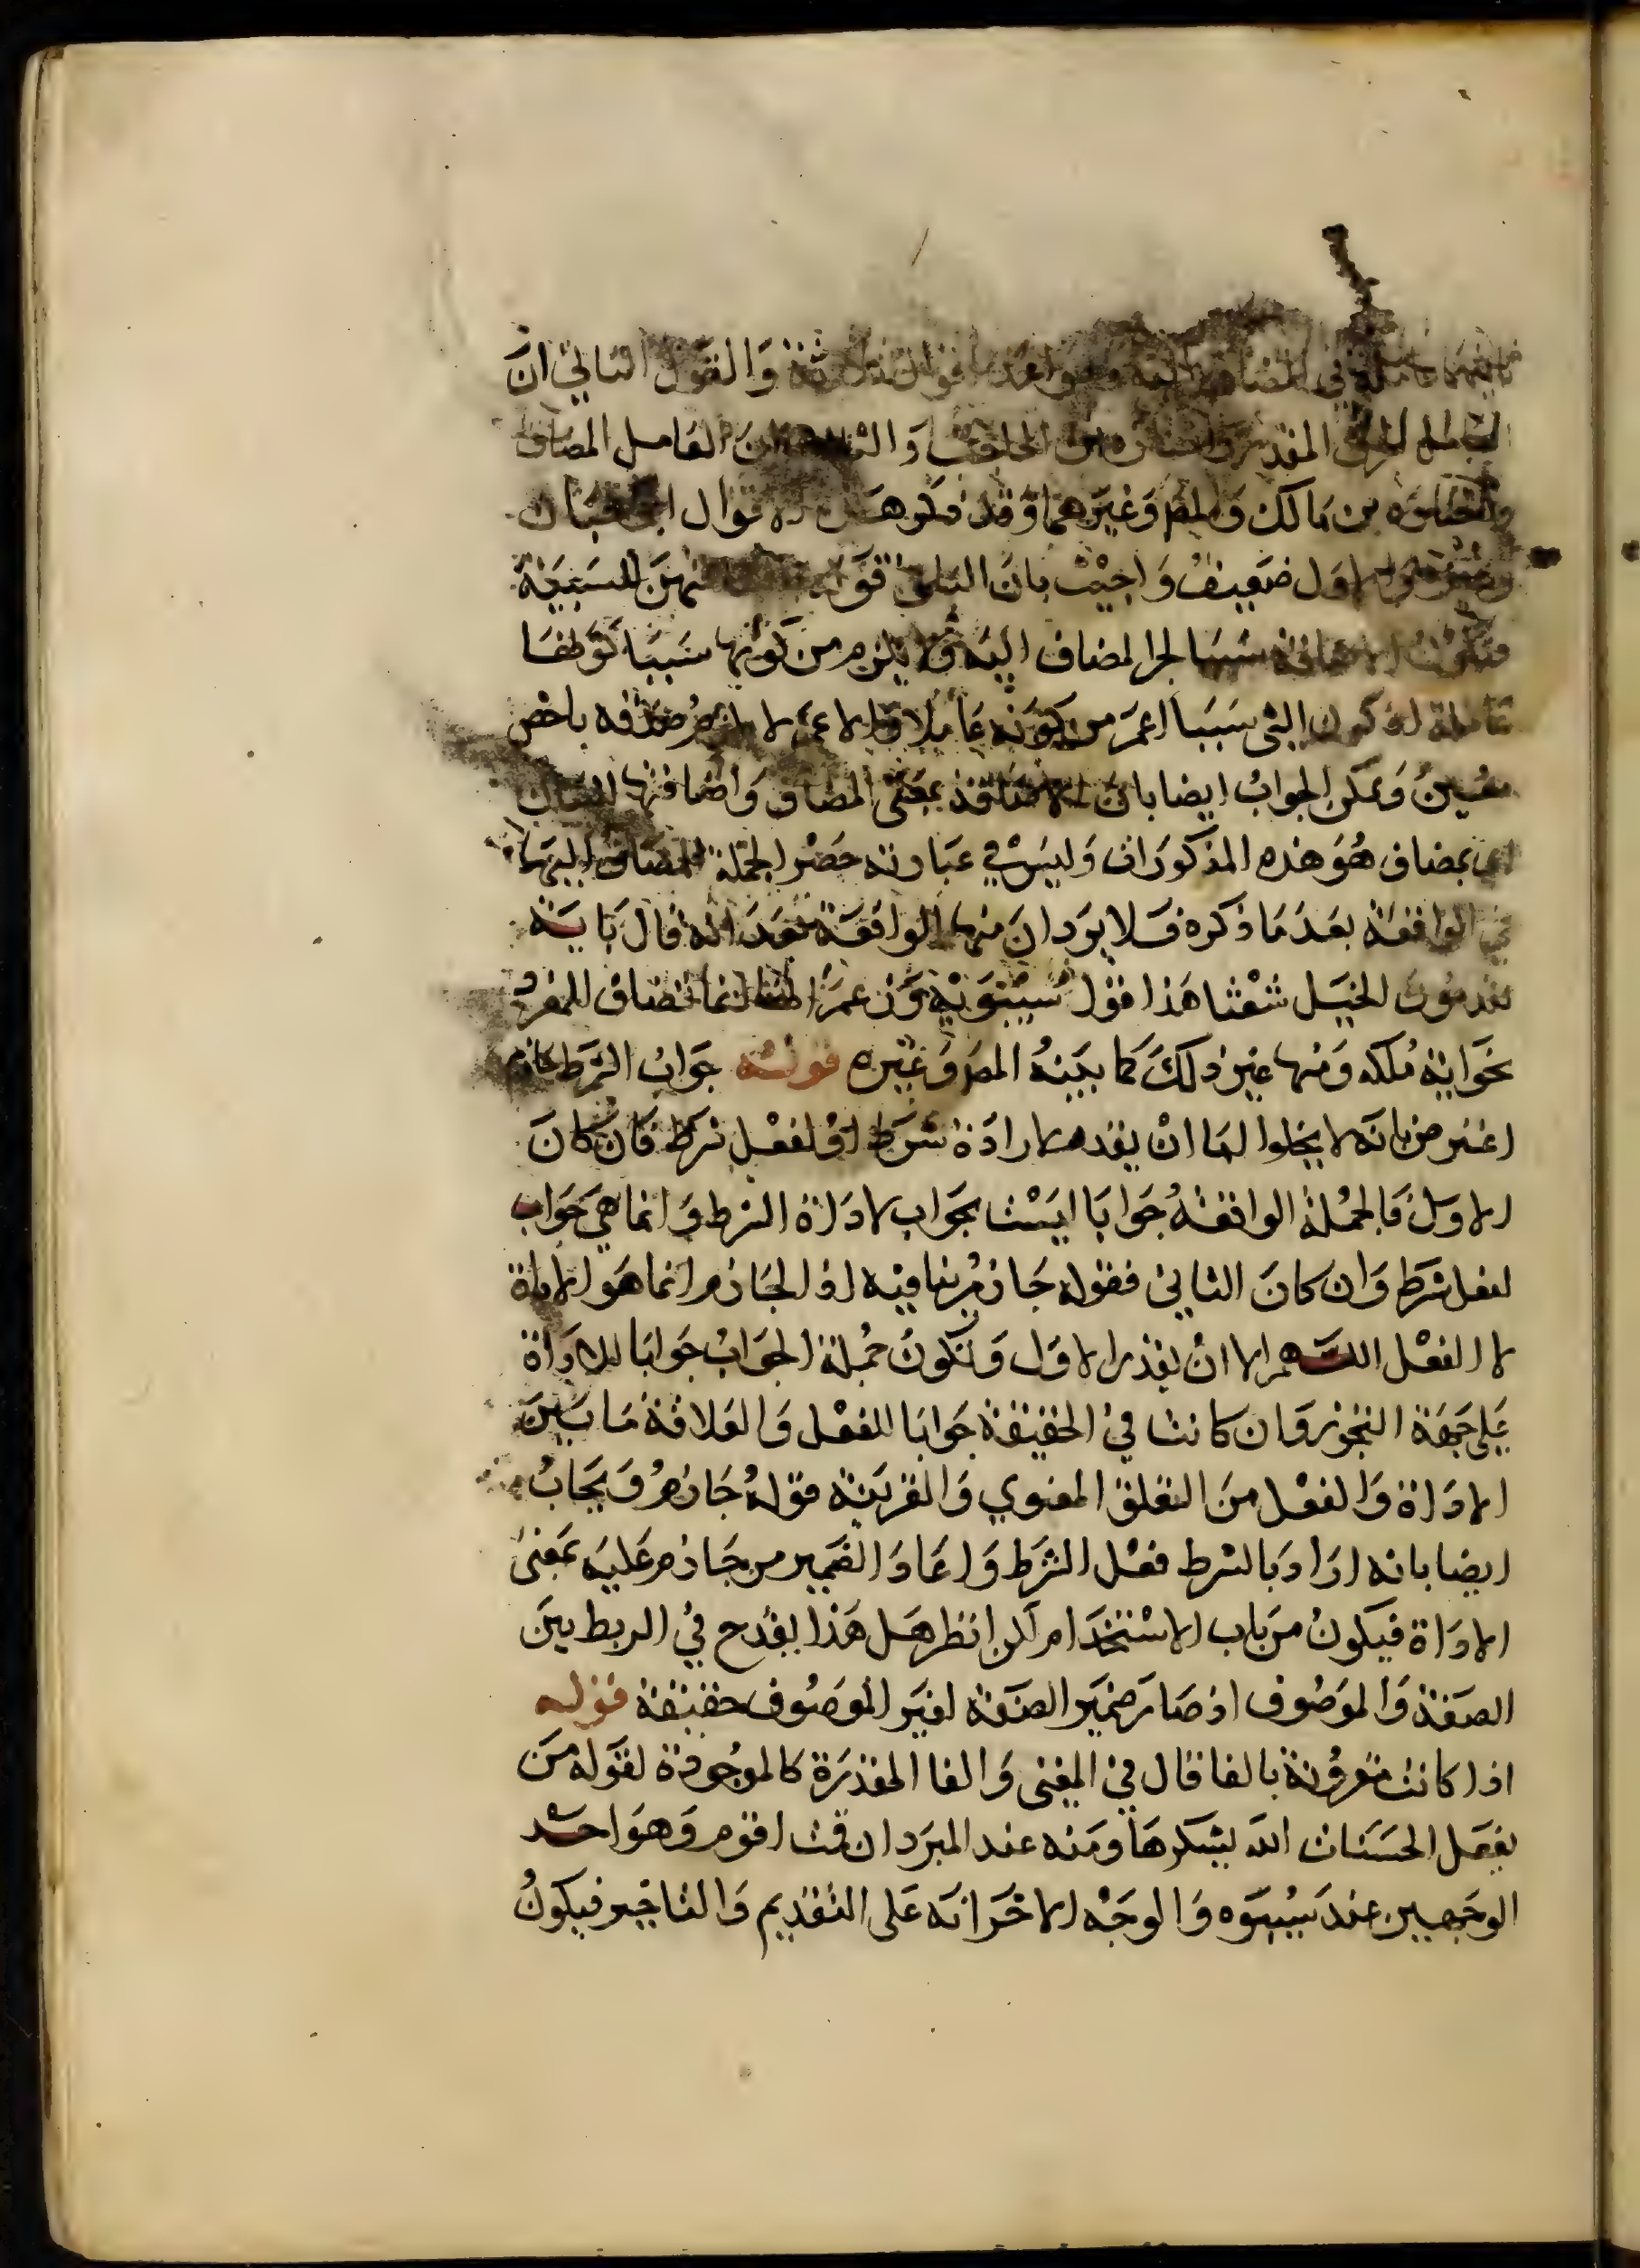 في المضاف اليه وهو احد اقوال ثلاثة وَالقول الثاني انَّ
العامل الحرف المقدر وَالثالث ان العامل المضاف
واختاره بن مَالك وَالمص وَغيرَهما وَقد هَذه الاقوال
الاول ضعيفٌ وَاجيْبْ بانَ السَببيَة
فتكون الاضافة سَببا لجر المضاف اليْه وَلا يلزم من كونها سَببًا كونها
عاملة اذ كون الشي سَببَا اعمَّ من كونه عَاملا وَالاعم لا يلزم صدقه باخص
معُينْ وَيمكن الجوابُ ايضا بانَ الاضافة بمعَنى المضاف وَاضافتها للبيان
اي بمضاف هُوَ هذه المذكورَات وَليسَ في عبَارته حَصْر الجملة المضاف اليهَا
في الواقعَة بعَدَ مَا ذكره فَلا يرَد انَ منها الواقعَة بعَدَ اية قال بَايَة
يقدمُونَ الخيَل شعْثا هَذا قوْل سيْبَوَيْه وَزعمَ انها انما تضاف للمفرد
نحَوَ اية مُلكه وَمنها غيْر ذلكَ كما بيَنهُ المصَ وَغيْره قولــه جوَاب الشرَط جازم
اعترض بانَه لا يخلوا امَا انْ يقدر لاداة شرَط اوْ لفعْل شرَط فان كانَ
الاوَل فَالجمْلة الواقعَة جوَابَا ليسَتْ بجوَاب لادَاة الشرط وَانما هيَ جوَاب
لفعل شرَط وَان كانَ الثاني فقوله جَازمُ ينافيْه اذ الجَازم انما هَو الاداة
لا الفعْل اللــهم الا انْ يقدر الاوَل وَتكونُ جُملة الجَوَابْ جوَابَا للادَاة
عَلى جهَة التجوز وَان كانت في الحقيقة جوَابَا للفعْل وَالعَلاقة مَا بيْنَ
الادَاة وَالفعْل منَ التعَلق المعَنوي وَالقرينَة قوَلهُ جَازمُ وَيجَابُ
ايضا بانه ارَادَ بالشرط فعْل الشرَط وَاعَادَ الضميَر من جَازم عَليَه بمَعْنى
الادَاة فيَكونُ مَن بَاب الاسْتخدَام لكن انظر هَل هَذا يقدَح في الربط بيَن
الصفَة وَالموَصُوف اذ صَار ضميَر الصفَة لغيَر الموَصُوف حقيقة قوله
اذا كانت مقرُونة بالفا قال في المغني وَالفا المقدرَة كالموجُودة لقوَله مَن
يفعَل الحسَنات الله يشكرهَا وَمنه عند المبرَد ان قمت اقوم وَهوَ احَد
الوجَهيين عند سيبَوَيه وَالوجَه الاخَر انَه عَلى التقديم وَالتاخير فيكونُ